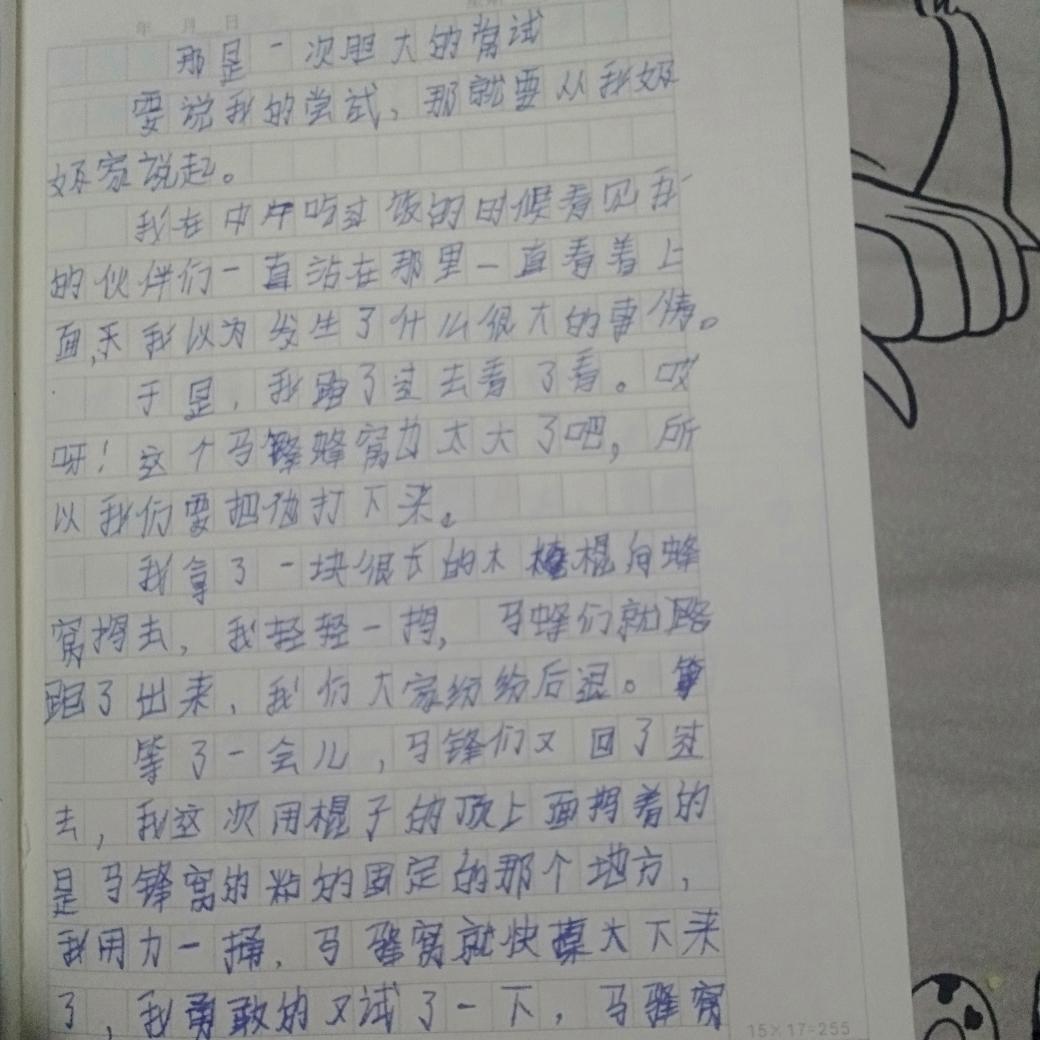 年 月 日
那是一次胆大的尝试
要说我的尝试，那就要从我奶
奶家说起。
我在中午吃过饭的时候看见我
的伙伴们一直站在那里一直看着上
面，我以为发生了什么很大的事情。
于是，我跑了过去看了看。哎
呀！这个马蜂窝也太大了吧，所
以我们要把他打下来。
我拿了一块很长的木棍向蜂
窝捅去，我轻轻一捅，马蜂们就跑
跑了出来，我们大家纷纷后退。
等了一会儿，马锋们又回了过
去，我这次用棍子的顶上面捅着的
是马锋窝的粘的固定的那个地方，
我用力一捅，马蜂窝就快掉大下来
了，我勇敢的又试了一下，马蜂窝
15×17=255